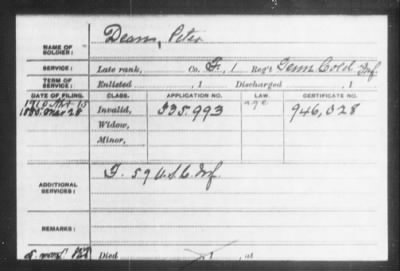 NAME OF SOLDIER: Deans, Peter
SERVICE: Late rank, Co. F, 1 Reg't Tenn Cold Inf.
TERM OF SERVICE: Enlisted , 1 Discharged , 1
DATE OF FILING. CLASS. APPLICATION NO. LAW. CERTIFICATE NO.
1910 Mar 15 age
Mar 28 Invalid, 535,993 946,028
Widow,
Minor,
ADDITIONAL SERVICES: F. 59 U.S.C. Inf.
REMARKS:
Died , 1 , at